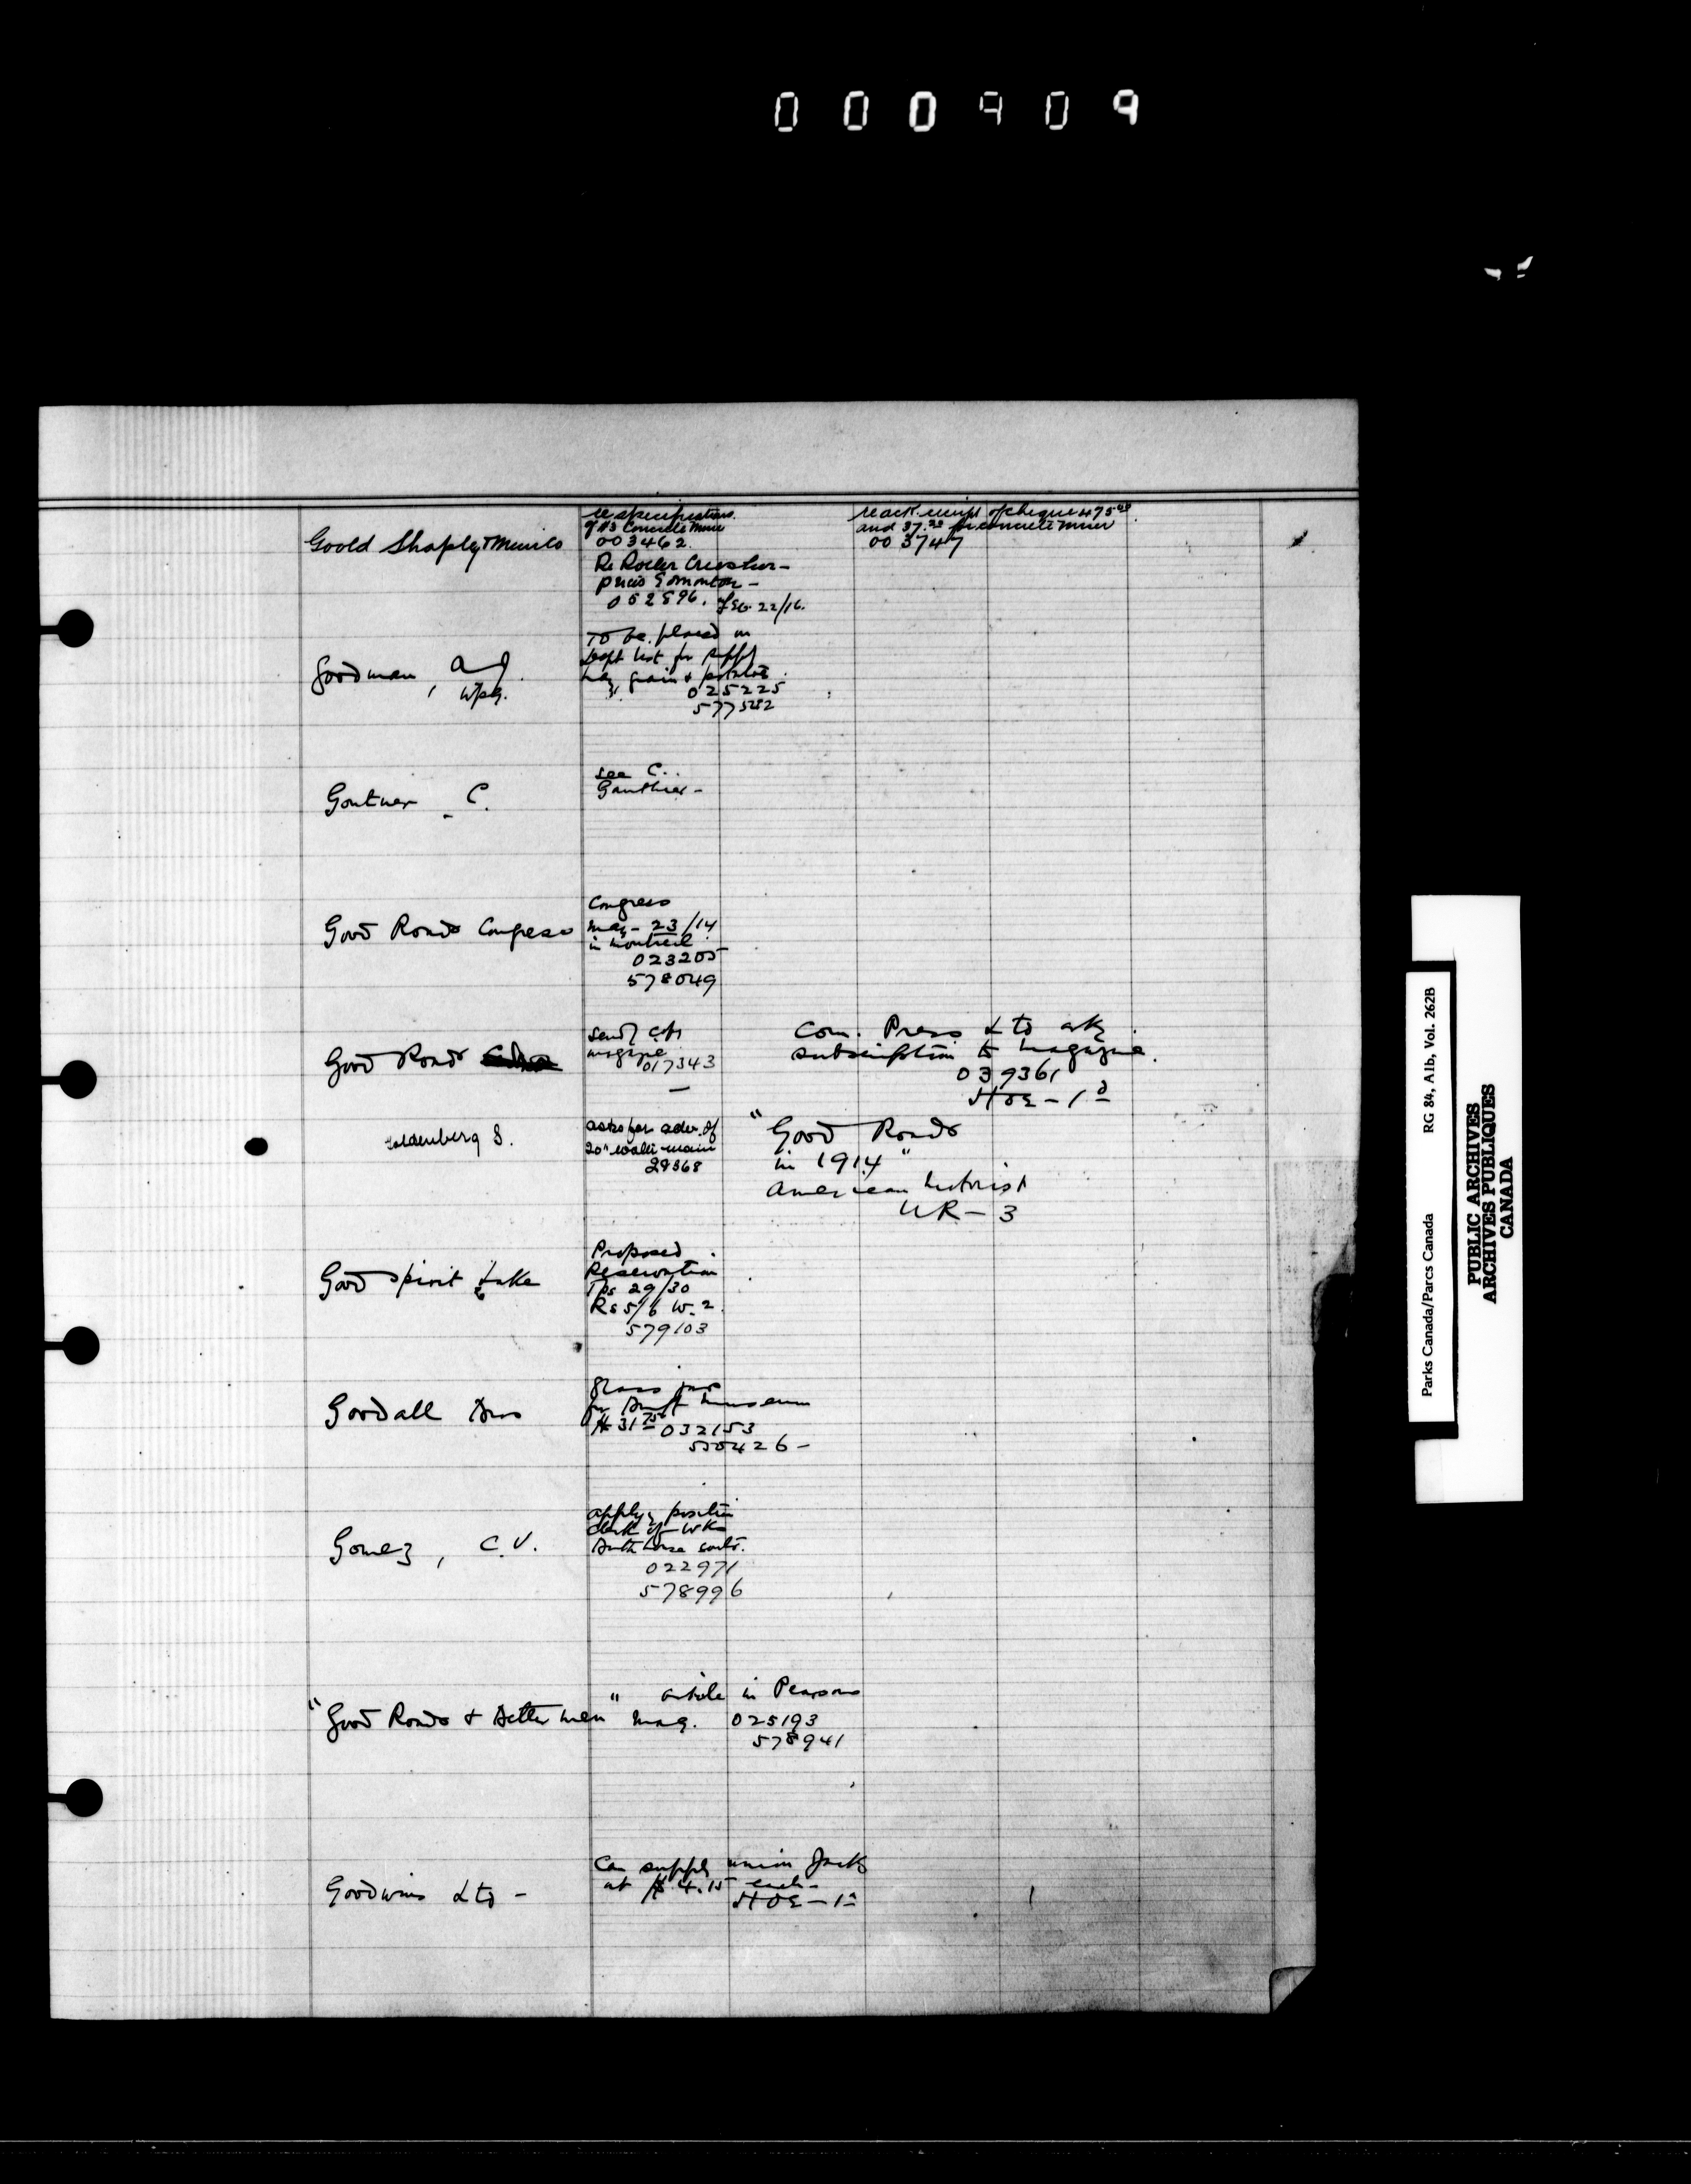 000909
re specifications
of #3 Concrete Mixer
Goold Shapley & Muir Co
003462
re ack. receipt of cheque 475.00
and 37.20 for concrete mixer
003747
Re Roller Crusher -
price Edmonton -
052896. Feb. 22/16.
Goodman, A J.
Wpg.
To be placed on
Dept list for supply
hay, grain & potatoes
025225
577582
Goutner C.
see C.
Gauthier -
Good Roads Congress
Congress
May - 23/14
in Montreal
023205
578049
Good Roads
send copy
magazine
017343
Com. Press Ltd ask
subscription to magazine.
039361
HOE - 1 d
Goldenberg S.
asks for adv. of
20" water main
29368
"Good Roads
in 1914"
American Motorist
UR - 3
Good Spirit Lake
Proposed
Reservation
Tps 29/30
Rs 5/6 W. 2
579103
Goodall Bros
Glass jars
for Banff Museum
$31.75 032153
550426 -
Gomez, C. V.
apply position
clerk of wks
Bath house
022971
578996
"Good Roads & Better Men" article in Pearsons
Mag. 025193
578941
Goodwins Ltd -
Can supply Union Jack
at $4.15 each -
HOE - 1 a
Parks Canada/Parcs Canada RG 84, Alb, Vol. 262B
PUBLIC ARCHIVES
ARCHIVES PUBLIQUES
CANADA